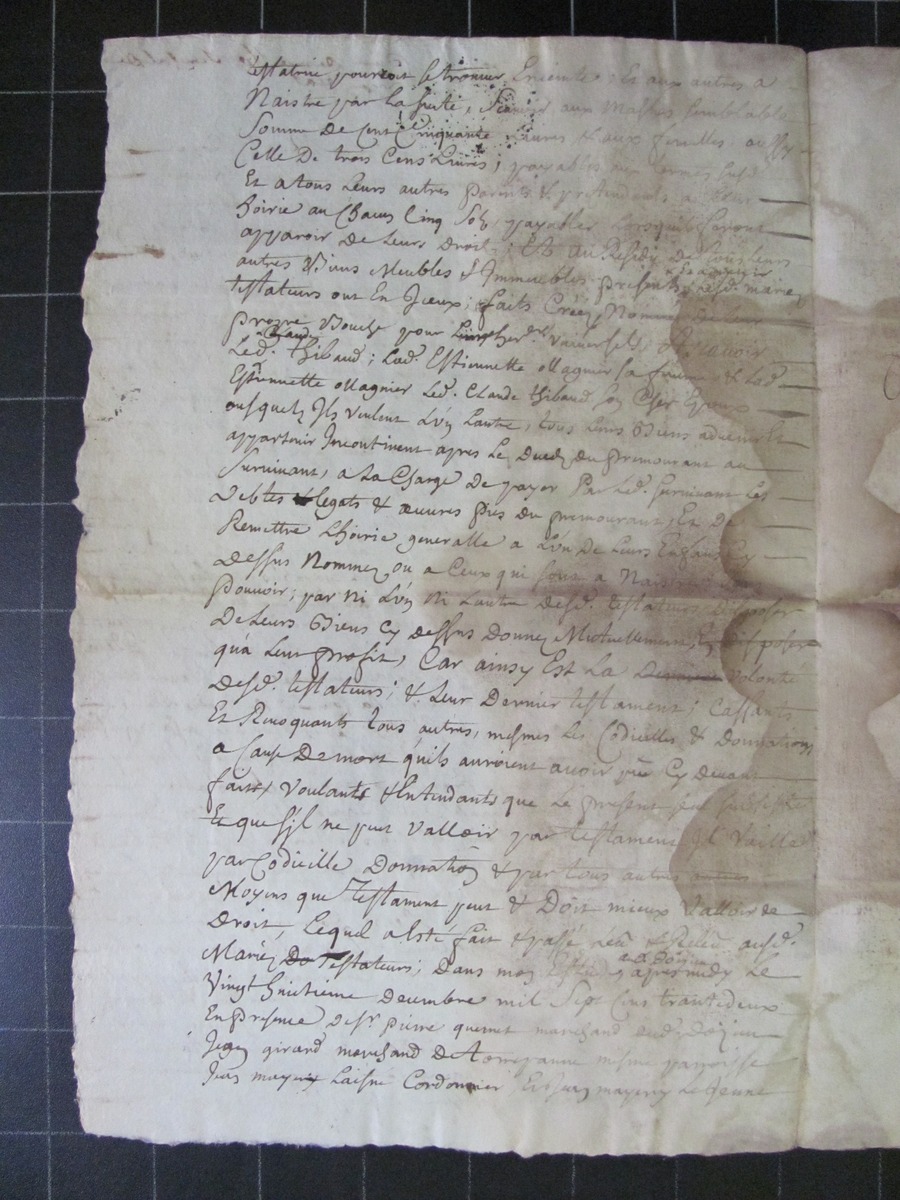 testatrice pourroit se trouver Enceinte Et aux autres a
Naistre par la suitte, Scavoir aux Masles semblable
Somme De Cent Cinquante Livres & aux femelles aussy
Celle De trois Cens Livres, payables aux termes susd.
Et a tous Leurs autres parents & pretendants a Leur
hoirie au Chacun Cinq Sols, payables Lorsquils feront
apparoir De Leurs Droit; Et Au Residu De tous Leurs
autres Biens Meubles & Immeubles presents & avenir Lesd. mariez
testateurs ont En Iceux; faits Créez, Nommez De
propre Bouche pour her.rs universels, Et Scavoir
Led. Claude thibaud; Lad. Estiennette Magnier sa femme & Lad.
Estiennette Magnier Led. Claude thibaud son Cher Epoux
ausquels Ils veulent L'un Lautre, tous Leurs Biens advenir Et
appartenir Incontinent apres Le Deces Du premourant au
Survivant, a La Charge De payer Par Led. survivant Les
Debtes Legats & œuvres pies Du premourant, Et De
Remettre Lhoirie generalle a L'un De Leurs Enfans Cy
Dessus Nommez ou a Ceux qui sont a Naistre; sans
Pouvoir; par Ni L'un Ni Lautre Desd. testateurs Disposer
De Leurs Biens Cy Dessus Donnez Mutuellement, Ez disposer
qu'a Leur profit, Car ainsy Est La Derniere volonté
Desd. testateurs; & Leur Dernier testament; Cassants
Et Revoquants tous autres, mesmes Les Codicilles & Donnations
a Cause De mort quils auroient avoir peu Cy Devant
faits, voulants & Entendants que Le present seul subsiste
Et que s'jl ne peut valloir par testament qu'il vaille
par Codicille Donnation & par tous autres
Moyens que testament peut & Doit mieux valloir de
Droit, Lequel a Esté fait & passé Leu & Releu ausd.
Mariez Testateurs; Dans mon Estude apres midy Le
Vingt huitieme Decembre mil Sept Cens trante deux
En presence De Sr. pierre quernet marchand aud.
girard marchand De mesme parroisse
Jean mayery Laisne Cordonnier Et Jean mayery Le Jeune